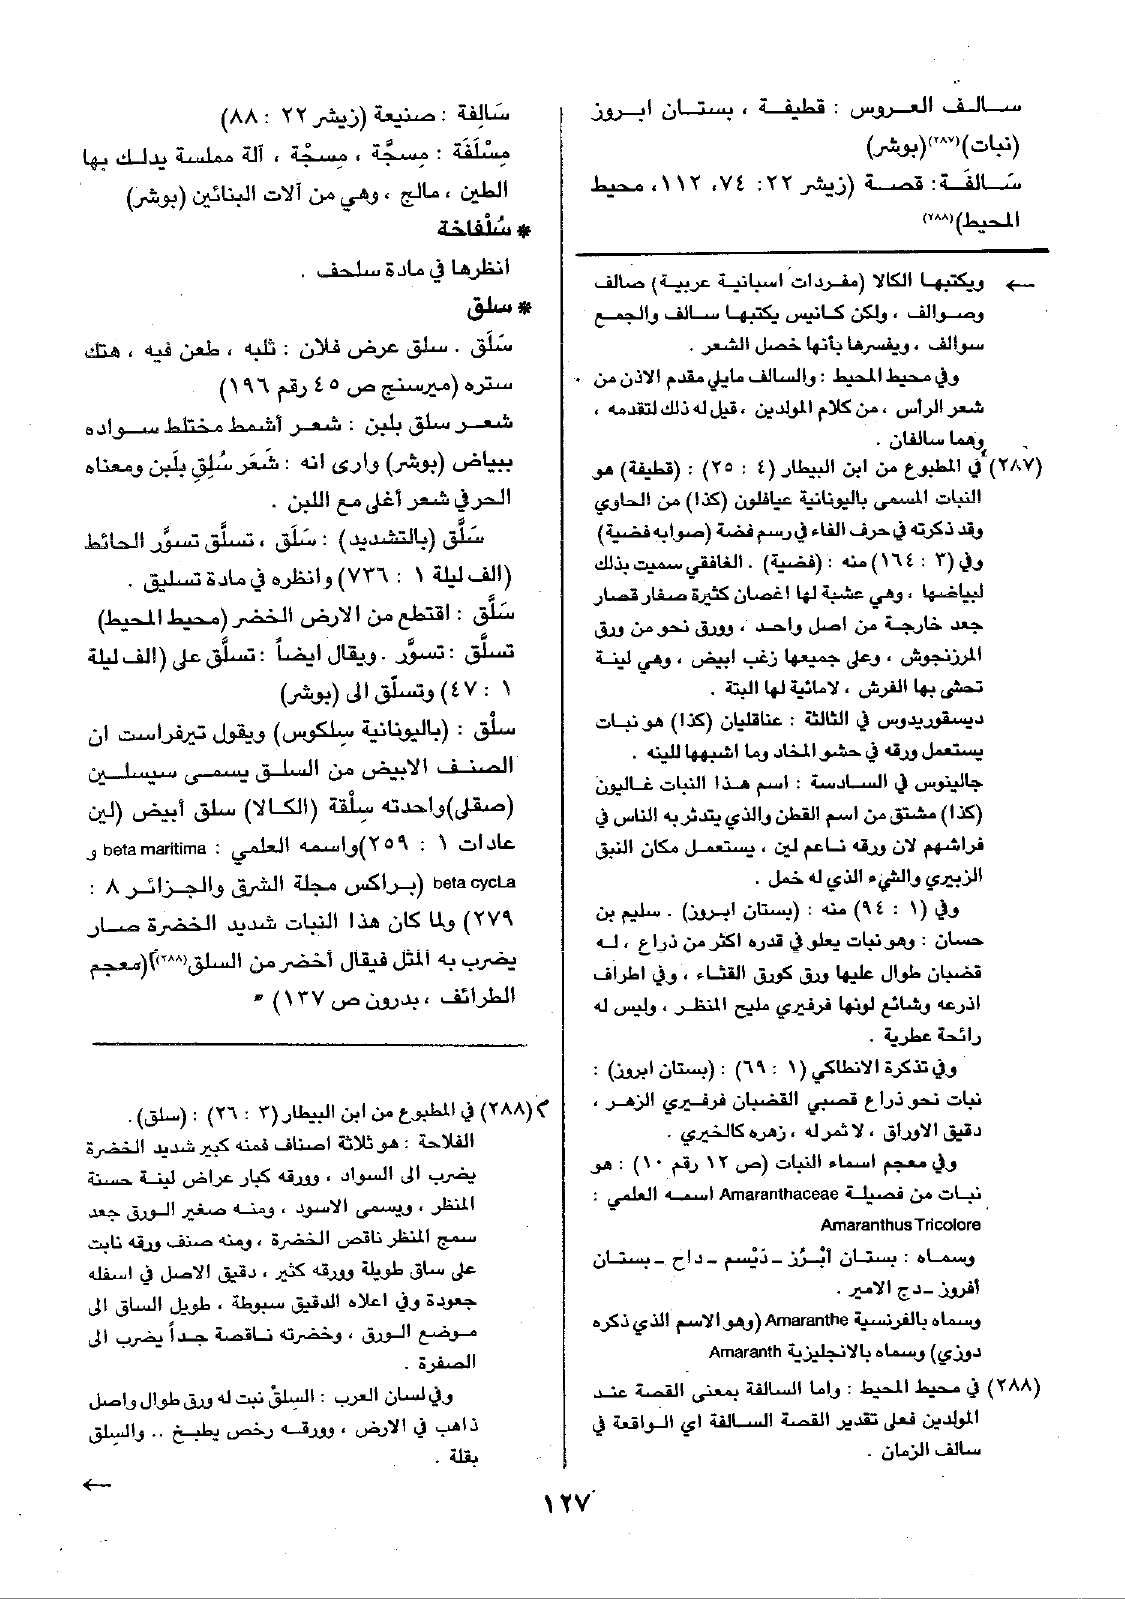 سـالـف العـروس : قطيفـة ، بستـان ابـروز
(نبات)(٢٨٧)(بوشر)
سَـالفَـة: قصـة (زيشر ٢٢: ٧٤، ١١٢، محيط
المحيط)(٢٨٨)
← ويكتبهـا الكالا (مفـردات اسبانيـة عربيـة) صالف
وصـوالف ، ولكن كـانيس يكتبهـا سـالف والجمع
سوالف ، ويفسرها بأنها خصل الشعر .
وفي محيط المحيط : والسالف مايلي مقدم الاذن من
شعر الرأس ، من كلام المولدين ، قيل له ذلك لتقدمه ،
وهما سالفان .
(٢٨٧) في المطبوع من ابن البيطار (٤ : ٢٥) : (قطيفة) هو
النبات المسمى باليونانية عيافلون (كذا) من الحاوي
وقد ذكرته في حرف الفاء في رسم فضة (صوابه فضية)
وفي (٣ : ١٦٤) منه : (فضية) . الغافقي سميت بذلك
لبياضها ، وهي عشبة لها اغصان كثيرة صغار قصار
جعد خارجـة من اصل واحـد ، وورق نحو من ورق
المرزنجوش ، وعلى جميعها زغب ابيض ، وهي لينـة
تحشى بها الفرش ، لامائية لها البتة .
ديسقوريدوس في الثالثة : عناقليان (كذا) هو نبات
يستعمل ورقه في حشو المخاد وما اشبهها للينه .
جالينوس في السادسة : اسم هـذا النبات غـاليون
(كذا) مشتق من اسم القطن والذي يتدثر به الناس في
فراشهم لان ورقه نـاعم لين ، يستعمـل مكان النبق
الزبيري والشيء الذي له خمل .
وفي (١ : ٩٤) منه : (بستان ابـروز) . سليم بن
حسان : وهو نبات يعلو في قدره اكثر من ذراع ، لـه
قضبان طوال عليها ورق كورق القثـاء ، وفي اطراف
اذرعه وشائع لونها فرفيري مليح المنظـر ، وليس له
رائحة عطرية .
وفي تذكرة الانطاكي (١ : ٦٩) : (بستان ابروز) :
نبات نحو ذراع قصبي القضبان فرفيري الزهـر ،
دقيق الاوراق ، لا ثمر له ، زهره كالخيري .
وفي معجم اسماء النبات (ص ١٢ رقم ١٠) : هو
نبـات من فصيلـة Amaranthaceae اسمـه العلمي :
Amaranthus Tricolore
وسمـاه : بستـان أَبْرُز ـ دَيْسم ـ داح ـ بستـان
أفروز ـ دج الامير .
وسماه بالفرنسية Amaranthe (وهو الاسم الذي ذكره
دوزي) وسماه بالانجليزية Amaranth
(٢٨٨) في محيط المحيط : واما السالفة بمعنى القصة عنـد
المولدين فعلى تقدير القصة السـالفة اي الـواقعة في
سالف الزمان .
سَالِفة : صنيعة (زيشر ٢٢ : ٨٨)
مِسْلَفَة : مِسجَّة ، مِسجَّة ، آلة مملسة يدلـك بها
الطين ، مالج ، وهي من آلات البنائين (بوشر)
* سُلْفاخة
أنظرها في مادة سلحف .
* سلق
سَلَق . سلق عرض فلان : ثلبه ، طعن فيه ، هتك
ستره (ميرسنج ص ٤٥ رقم ١٩٦)
شعـر سلق بلبن : شعـر أشمط مختلط سـواده
ببياض (بوشر) وارى انه : شَعَر سُلِق بلَبن ومعناه
الحرفي شعر أغلي مع اللبن .
سَلَّق (بالتشديد) : سَلَق ، تسلَّق تسوَّر الحائط
(الف ليلة ١ : ٧٣٦) وانظره في مادة تسليق .
سَلَّق : اقتطع من الارض الخضر (محيط المحيط)
تسلَّق : تسوَّر . ويقال ايضـاً : تسلَّق على (الف ليلة
١ : ٤٧) وتسلّق الى (بوشر)
سلْق : (باليونانية سِلكوس) ويقول تيرفراست ان
الصنف الابيض من السلـق يسمـى سيسلـين
(صقلي)واحدته سلْقة (الكـالا) سلق أبيض (لين
عادات ١ : ٢٥٩)واسمه العلمي : beta maritima و
beta cycLa (بـراكس مجلة الشرق والجـزائـر ٨ :
٢٧٩) ولما كان هذا النبات شديد الخضرة صـار
يضرب به المثل فيقال أخضر من السلق(٢٨٨)أ(معجم
الطرائف ، بدرون ص ١٣٧) *
(٢٨٨)أ في المطبوع من ابن البيطار (٣ : ٢٦) : (سلق).
الفلاحة : هو ثلاثة اصناف فمنه كبير شديد الخضرة
يضرب الى السواد ، وورقه كبار عراض لينـة حسنة
المنظر ، ويسمى الاسود ، ومنـه صغير الـورق جعد
سمج المنظر ناقص الخضرة ، ومنه صنف ورقه نابت
على ساق طويلة وورقه كثير ، دقيق الاصل في اسفله
جعودة وفي اعلاه الدقيق سبوطة ، طويل الساق الى
مـوضع الـورق ، وخضرته نـاقصة جـداً يضرب الى
الصفرة .
وفي لسان العرب : السلق نبت له ورق طوال واصل
ذاهب في الارض ، وورقـه رخص يطبـخ .. والسلق
بقلة .
←
١٢٧